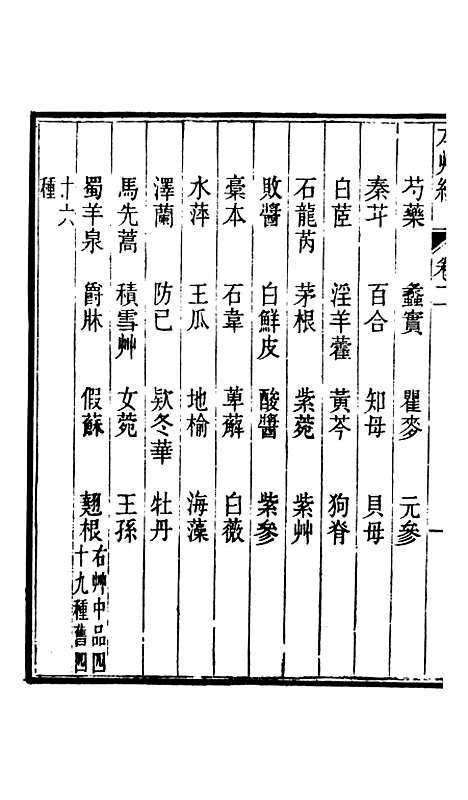 本艸經 卷二 一
芍藥 蠡實 瞿麥 元參
秦艽 百合 知母 貝母
白茝 淫羊藿 黃芩 狗脊
石龍芮 茅根 紫菀 紫艸
敗醬 白鮮皮 酸醬 紫參
藁本 石韋 萆薢 白薇
水萍 王瓜 地榆 海藻
澤蘭 防己 欵冬華 牡丹
馬先蒿 積雪艸 女菀 王孫
蜀羊泉 爵牀 假蘇 翹根 右艸中品四十九種舊四
十六
種